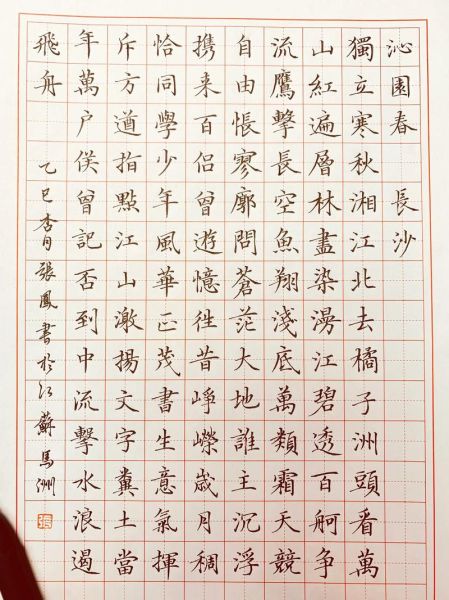 沁園春 長沙
獨立寒秋湘江北去橘子洲頭看萬
山紅遍層林盡染漫江碧透百舸争
流鷹擊長空魚翔淺底萬類霜天競
自由悵寥廓問蒼茫大地誰主沉浮
携来百侣曾遊憶徃昔崢嶸歳月稠
恰同學少年風華正茂書生意氣揮
斥方遒指點江山激揚文字糞土當
年萬户侯曾記否到中流擊水浪遏
飛舟 乙巳杏月張鳳書於江蘇馬洲